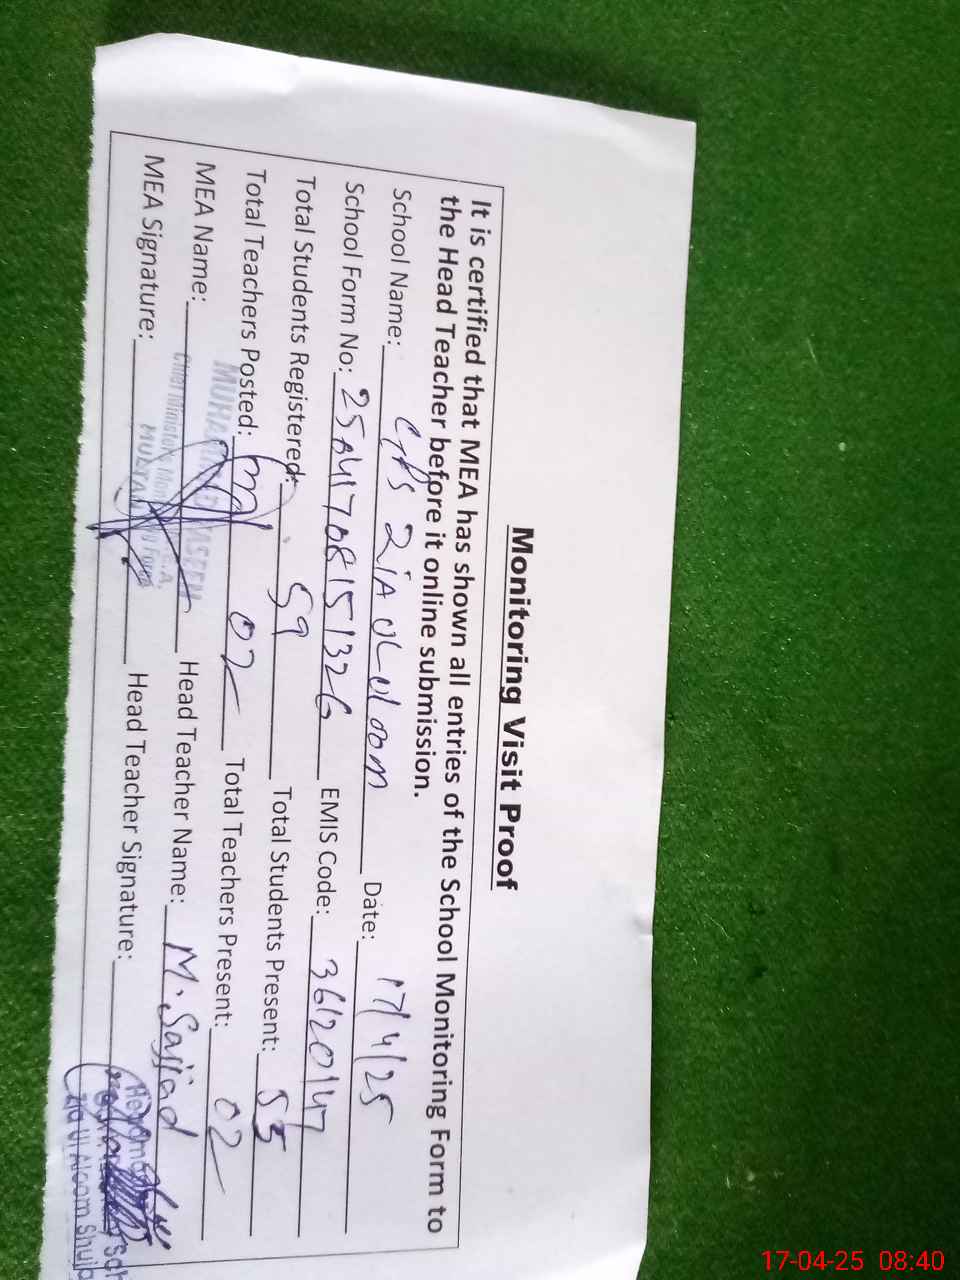 Monitoring Visit Proof
It is certified that MEA has shown all entries of the School Monitoring Form to
the Head Teacher before it online submission.
School Name: GPS ZiA ULUloom Date: 17/4/25
School Form No: EMIS Code: 36120147
Total Students Registered: 59 Total Students Present: 55
Total Teachers Posted: 02 Total Teachers Present: 02
MEA Name: Head Teacher Name: M. Sajjad
MEA Signature: Head Teacher Signature:
Zia Ul Aloom Shujb
17-04-25 08:40